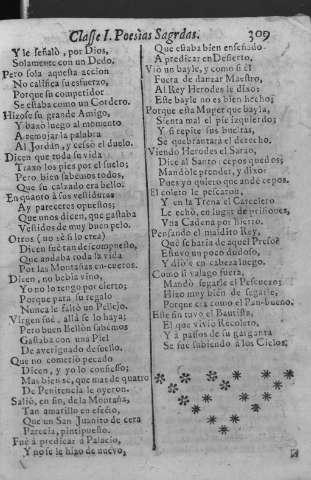 Classe I. Poesias Sagrdas. 309
Y le señalò, por Dios,
Solamente con un Dedo.
Pero sola aquesta accion
No califica su esfuerzo,
Porque su competidor
Se estaba como un Cordero.
Hizose su grande Amigo,
Y baxò luego al momento
A remojar la palabra
Al Jordán, y cessò el duelo.
Dicen que toda su vida
Traxo los pies por el suelo;
Pero bien sabemos todos,
Que su calzado era bello.
En quanto à sus vestiduras
Ay pareceres opuestos;
Que unos dicen, que gastaba
Vestidos de muy buen pelo.
Otros (no sè si lo crea)
Dicen fuè tan descompuesto,
Que andaba toda la vida
Por las Montañas en cueros.
Dicen, no bebia vino,
Yo no lo tengo por cierto;
Porque para su regalo
Nunca le faltò un Pellejo.
Virgen fuè allà se lo haya;
Pero buen Bellòn sabemos
Gastaba con una Piel
De averiguado
Que no cometiò pecado
Dicen, y yo lo confiesso;
Mas bien sè, que mas de quatro
De Penitencia le oyeron.
Saliò, en fin, de la Montaña,
Tan amarillo en efecto,
Que un San Juanito de cera
Parecia, pintipuesto.
Fuè à predicar à Palacio,
Y no se le hizo de nuevo,
Que estaba bien enseñado
A predicar en Desierto.
Viò un bayle, y como si èl
Fuera de danzar Maestro,
Al Rey Herodes le dixo:
Este bayle no es bien hecho;
Porque esta Muger que bayla,
Sienta mal el pie izquierdo;
Y si repite sus bueltas,
Se quebrantarà el derecho.
Viendo Herodes el Sarao,
Dice al Santo: cepos quedos;
Mandòle prender, y dixo:
Pues yo quiero que ande cepos.
El coleto le pescaron,
Y en la Trena el Carcelero
Le echò, en lugar de prisiones,
Vna Cadena por hierro.
Pensando el maldito Rey,
Que se haria de aquel Preso
Estuvo un poco dudoso,
Y diòle en cabeza luego.
Como si valago fuera,
Mandò segarle el Pescuezo;
Hizo muy bien de segarle,
Porque era como el Pan-bueno.
Este fin tuvo el Bautista,
El que viviò Recoleto,
Y à passos de su garganta
Se fuè subiendo à los Cielos;